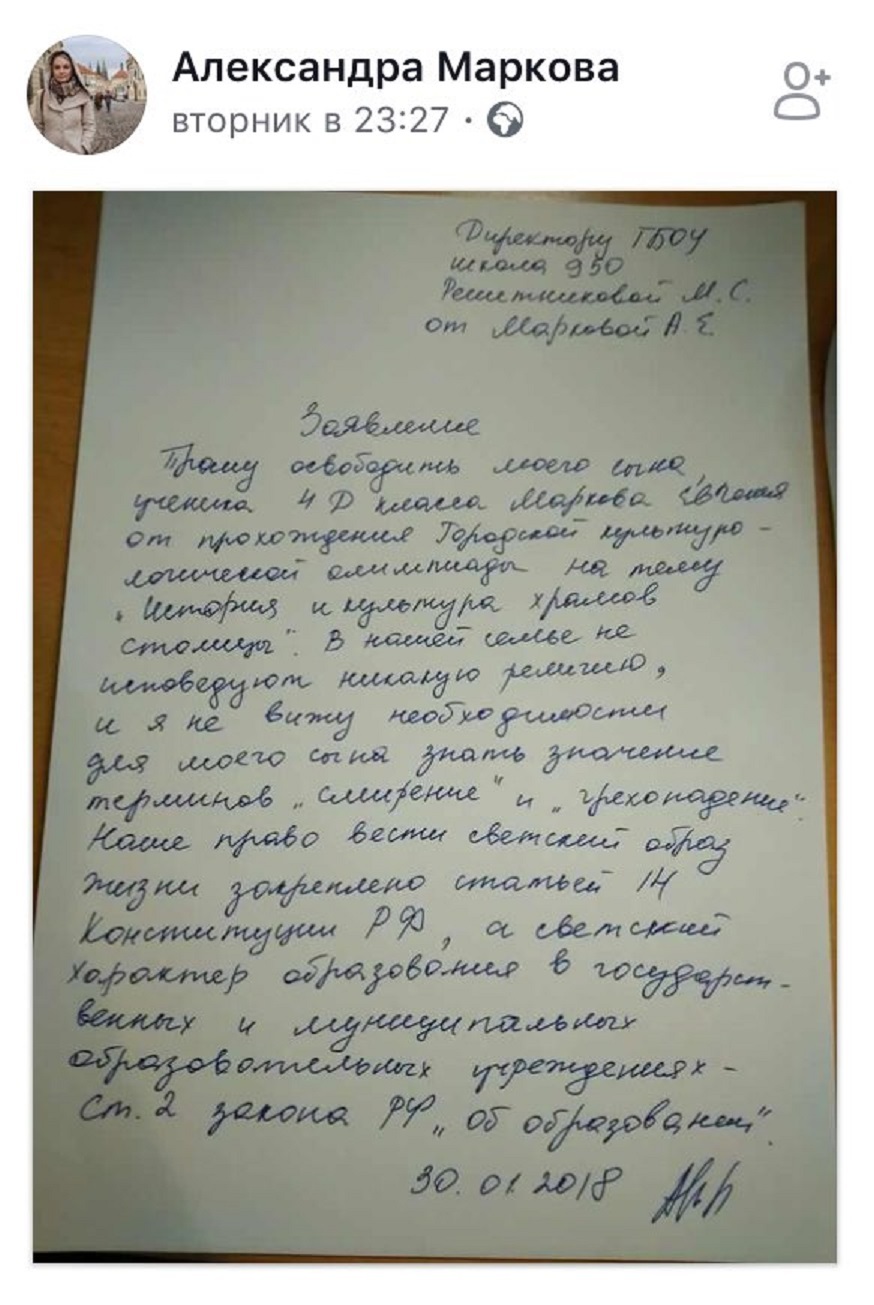 Александра Маркова
вторник в 23:27 ·
Директору ГБОУ
школа 950
Решетниковой М. С.
от Марковой А. Е.
Заявление
Прошу освободить моего сына,
ученика 4 Д класса Маркова Евгения
от прохождения Городской культуро-
логической олимпиады на тему
„История и культура храмов
столицы". В нашей семье не
исповедуют никакую религию,
и я не вижу необходимости
для моего сына знать значение
терминов „смирение" и „грехопадение".
Наше право вести светский образ
жизни закреплено статьей 14
Конституции РФ, а светский
характер образования в государст-
венных и муниципальных
образовательных учреждениях -
Ст. 2 закона РФ „Об образовании".
30.01.2018